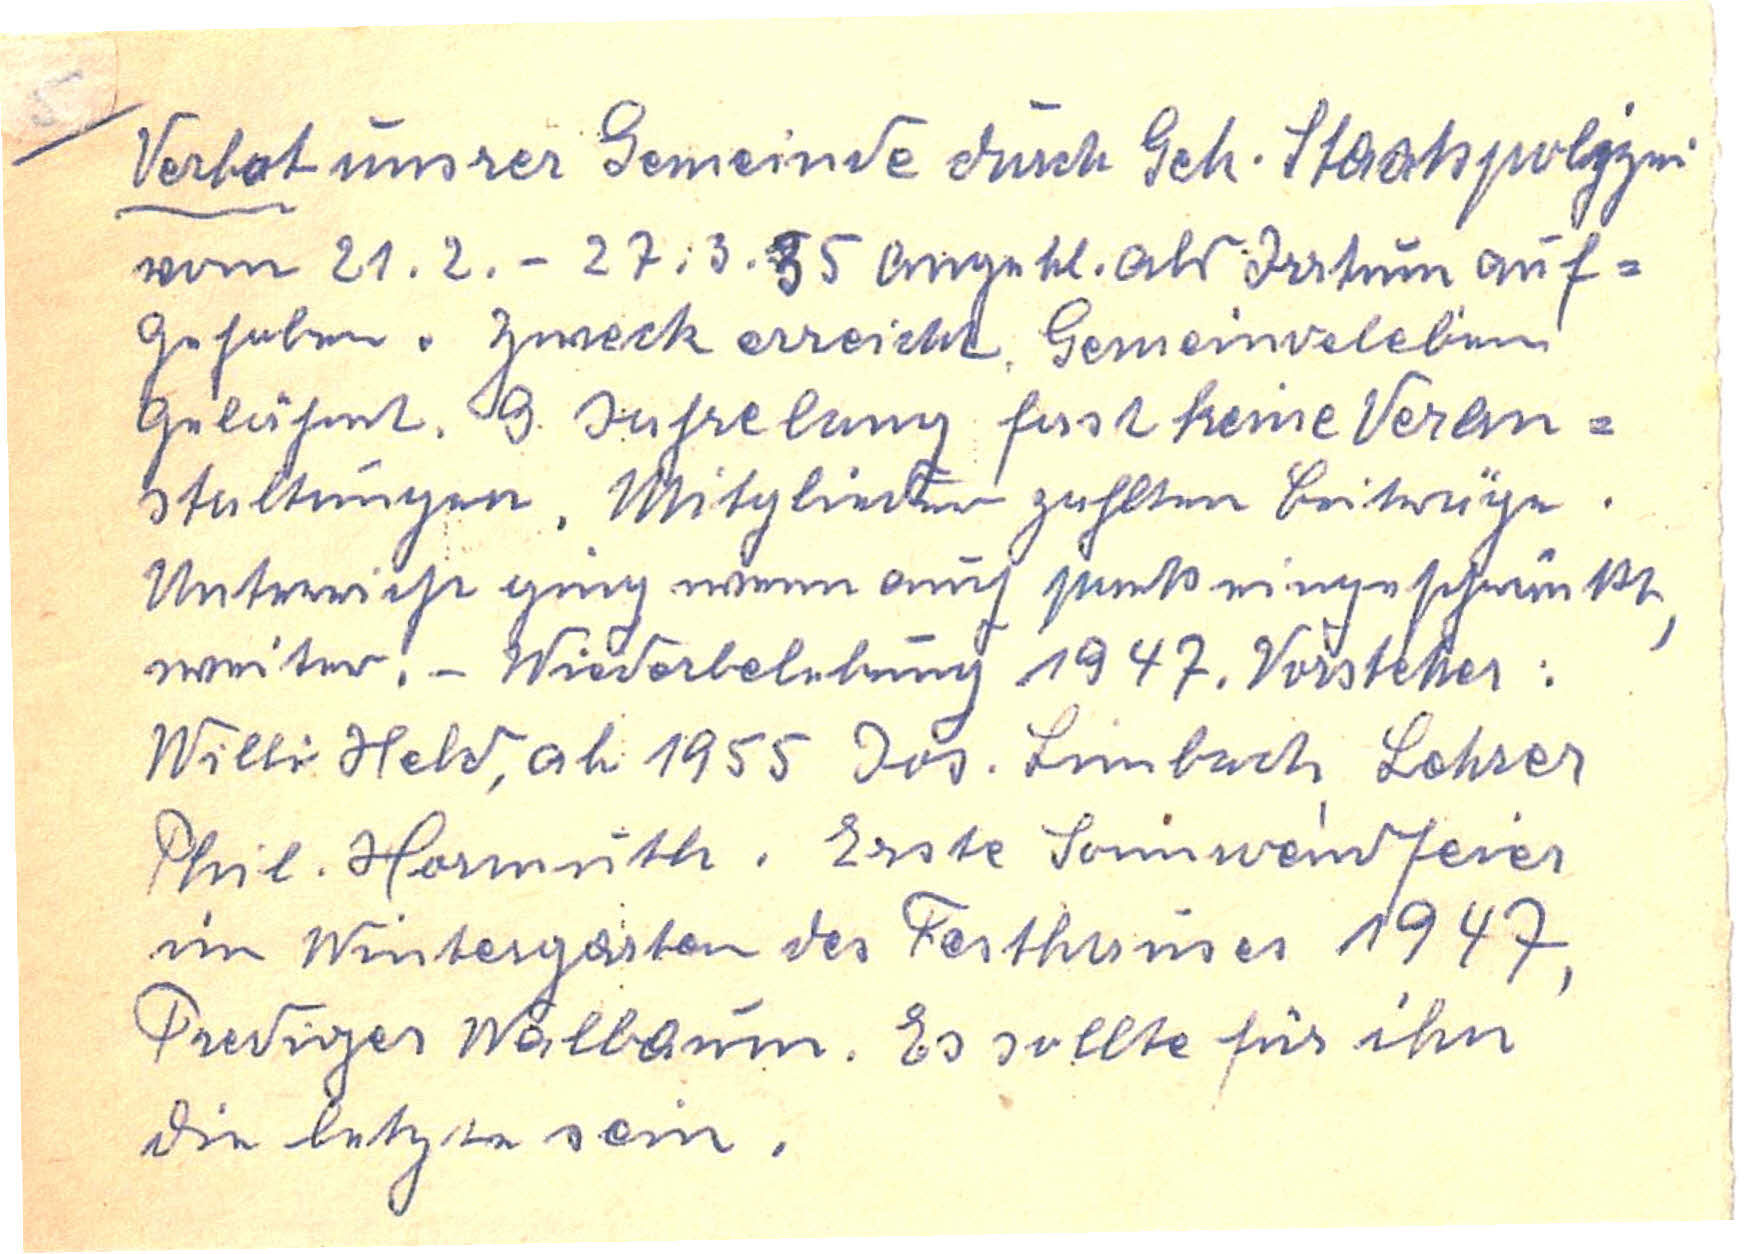 Verbot unsrer Gemeinde durch Geh. Staatspolizei
vom 21.2. - 27.3.35 angebl. als Irrtum auf=
gehoben. Zweck erreicht. Gemeindeleben
gelähmt. Jahrelang fast keine Veran=
staltungen. Mitglieder zahlten Beiträge.
Unterricht ging wenn auch stark eingeschränkt,
weiter. - Wiederbelebung 1947. Vorsteher:
Willi Held, ab 1955 Jos. Limbach, Lehrer
Phil. Hormuth. Erste Sonnwendfeier
im Wintergarten des Festhauses 1947,
Prediger Walbaum. Es sollte für ihn
die letzte sein.